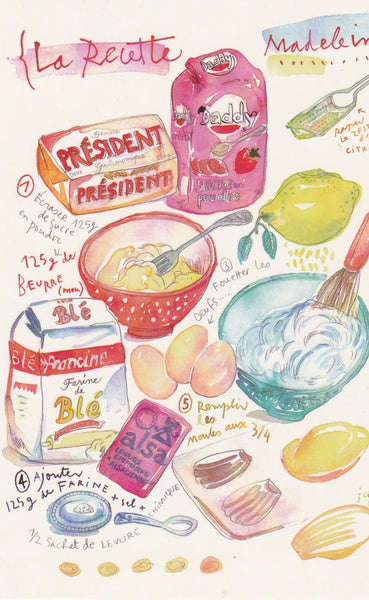 La Recette
Madelein
Daddy
Daddy
SUCRE en
poudre
Beurre
PRÉSIDENT
Gastronomique
PRÉSIDENT
①
Écraser 125g
de sucre
en poudre
125g de
BEURRE (mou)
③ Fouetter les
oeufs....
Blé
Blé Francine
Farine
de
Blé
alsa
LEVURE
CHIMIQUE
ALSACIENNE
⑤ Remplir
les
moules aux 3/4
④ Ajouter
125g de FARINE + sel +
CHIMIQUE
1/2 Sachet de LEVURE